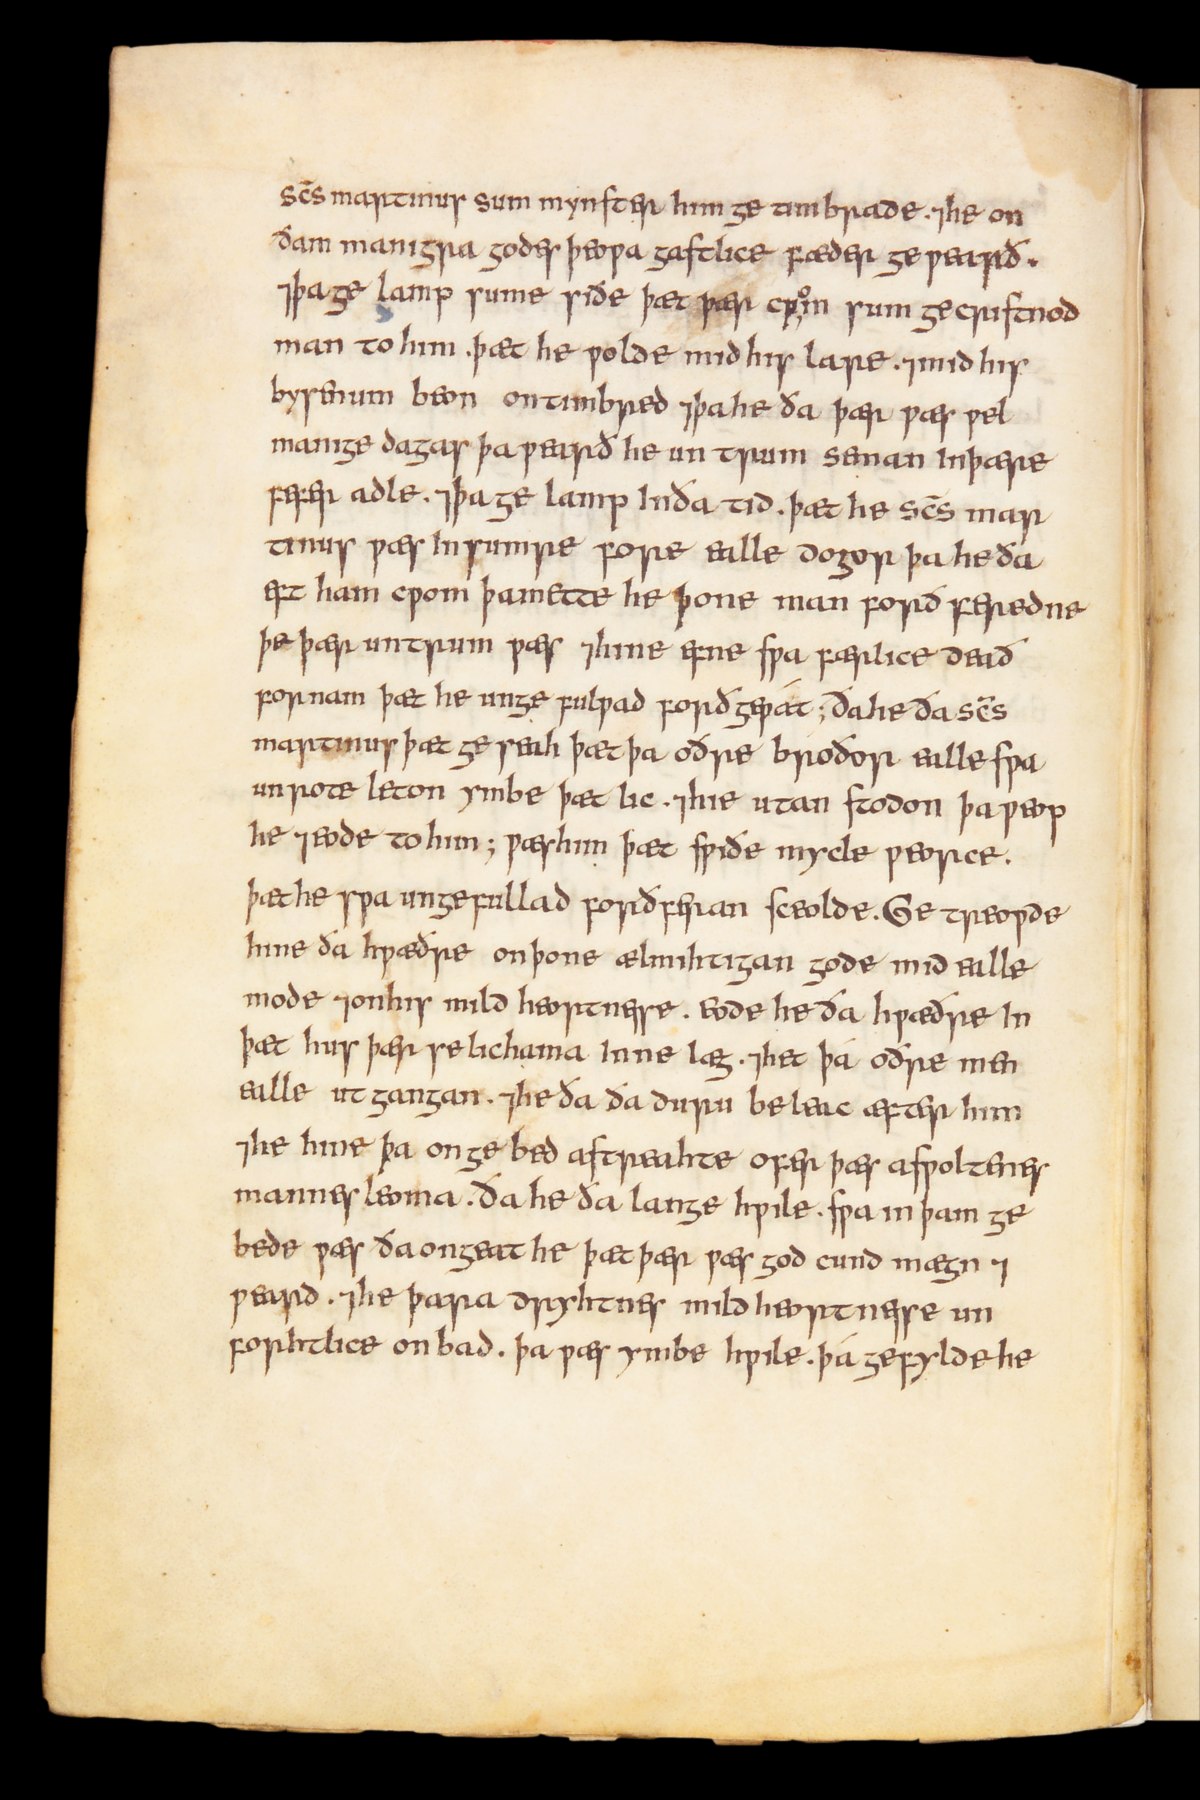 sc̄s martinus sum mynster him ge timbrade. ⁊he on
ðam manigra godes þeoƿa gastlice fæder ge ƿearð.
⁊þa ge lamp sume siðe þæt þær cƿom sum ge cristnod
man to him. þæt he ƿolde mid his lare. ⁊mid his
bysenum beon on timbred ⁊þa he ða þær ƿæs ƿel
manige dagas þa ƿearð he un trum semnan In þære
fefer adle. ⁊þa ge lamp In ða tid. þæt he sc̄s mar
tinus ƿæs In sumre fore ealle dogor þa he ða
eft ham cƿom þa mette he þone man forð feredne
þe þær untrum ƿæs ⁊hine efne sƿa færlice deað
fornam þæt he unge fulƿad forð geƿát; ða he ða sc̄s
martinus þæt ge seah þæt þa oðre broðor ealle sƿa
unrote leton ymbe þæt lic. ⁊hie utan stodon þa ƿeoƿ
he ⁊eode to him; ƿæs him þæt sƿiðe mycle ƿeorce.
þæt he sƿa ungefullad forðferan sceolde. Getreoƿde
hine ða hƿæðre on þone ælmihtigan gode mid ealle
mode ⁊on his mild heortnesse. eode he ða hƿæðre In
þæt hus þær se lichama Inne læg. ⁊het þá oðre men
ealle ut gangan. ⁊he ða ða duru be leac æfter him
⁊he hine þa on ge bed astreahte ofer þæs asƿoltenes
mannes leoma. ða he ða lange hƿile. sƿa in þam ge
bede ƿæs ða ongeat he þæt þær ƿæs god cund mægn ⁊
ƿearð. ⁊he þæra dryhtnes mild heortnesse un
forhtlice on bad. þa ƿæs ymbe hƿile. þá gefylde he